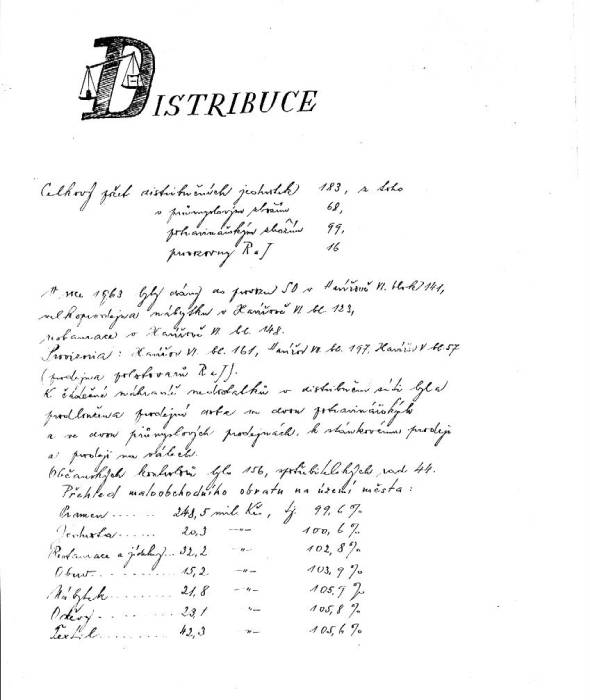 DISTRIBUCE
Celkový počet distribučních jednotek 183, z toho
s průmyslovým zbožím 68,
potravinářským zbožím 99,
provozovny RaJ 16
V roce 1963 byly dány do provozu SO v Havířově VI. blok 141,
velkoprodejna nábytku v Havířově VI bl. 123,
restaurace v Havířově VI bl. 148.
: Havířov VI. bl. 161, Havířov VI bl. 197, Havířov V bl. 57
(prodejna polotovarů RaJ).
K částečné náhradě nedostatků v distribuční síti byla
prodloužena prodejní doba ve dvou potravinářských
a ve dvou průmyslových prodejnách, k stánkovému prodeji
a prodeji na
Občanských kontrolorů bylo 156, spotřebitelských rad 44.
Přehled maloobchodního obratu na území města:
Pramen ...... 248,5 mil. Kčs, tj. 99,6 %
Jednota ..... 20,3 -"- 100,6 %
Restaurace a jídelny ... 32,2 -"- 102,8 %
Obuv ......... 15,2 -"- 103,9 %
Nábytek ........ 21,8 -"- 105,9 %
Oděvy ........ 23,1 105,8 %
Textil ........ 42,3 -"- 105,6 %